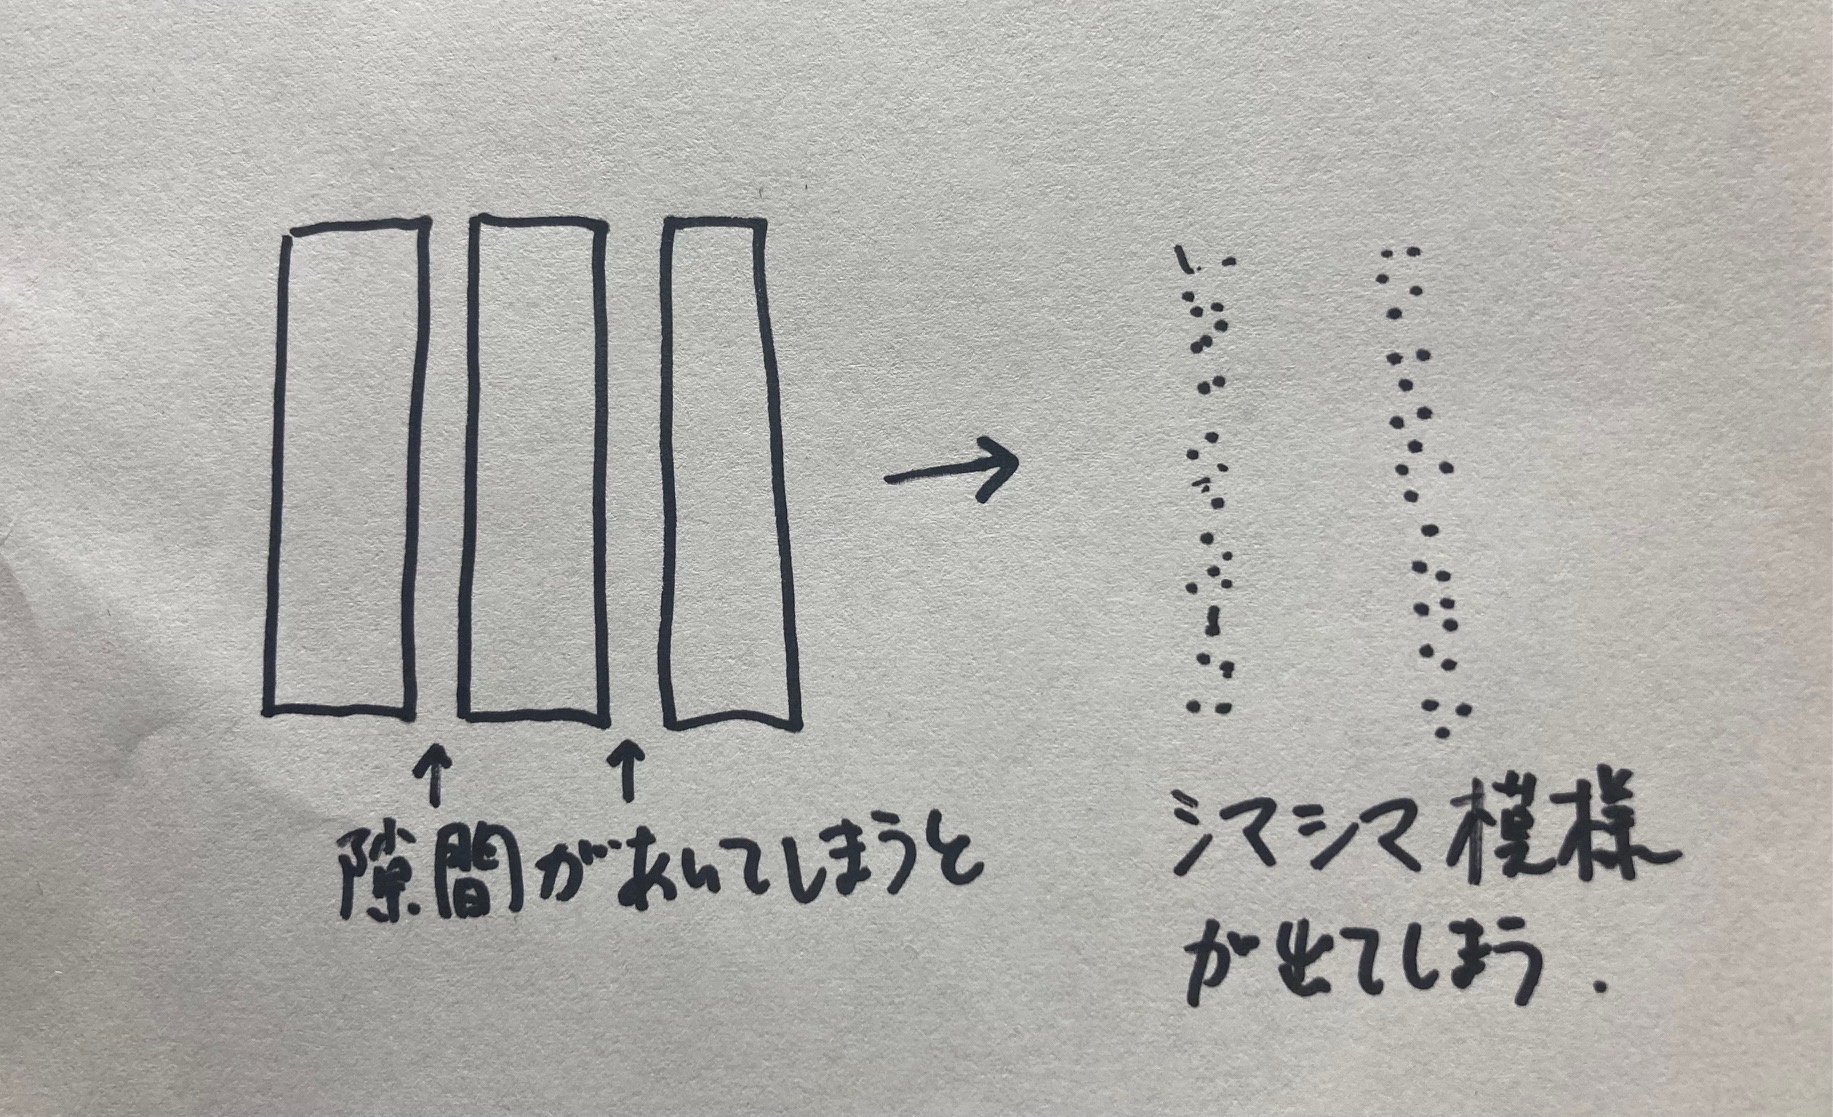 隙間があいてしまうと
シマシマ模様
が出てしまう.